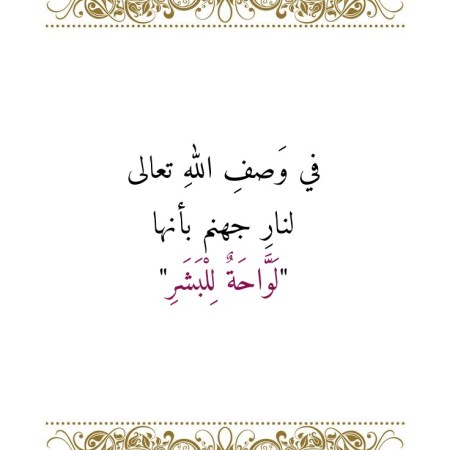 في وَصفِ اللهِ تعالى
لنارِ جهنم بأنها
"لَوَّاحَةٌ لِلْبَشَرِ"